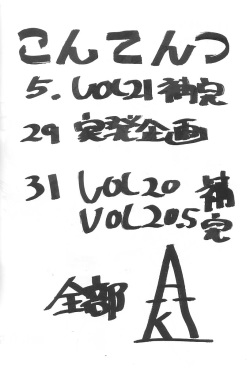 こんてんつ
5. VOL21 補完
29 突発企画
31 VOL20 補完
VOL20.5
全部 AK